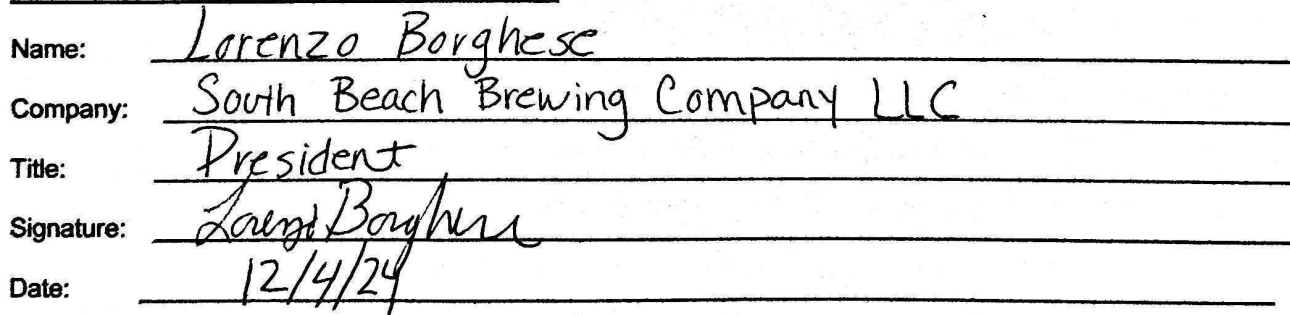 Name: Lorenzo Borghese
Company: South Beach Brewing Company LLC
Title: President
Signature: Lorenzo Borghese
Date: 12/4/24